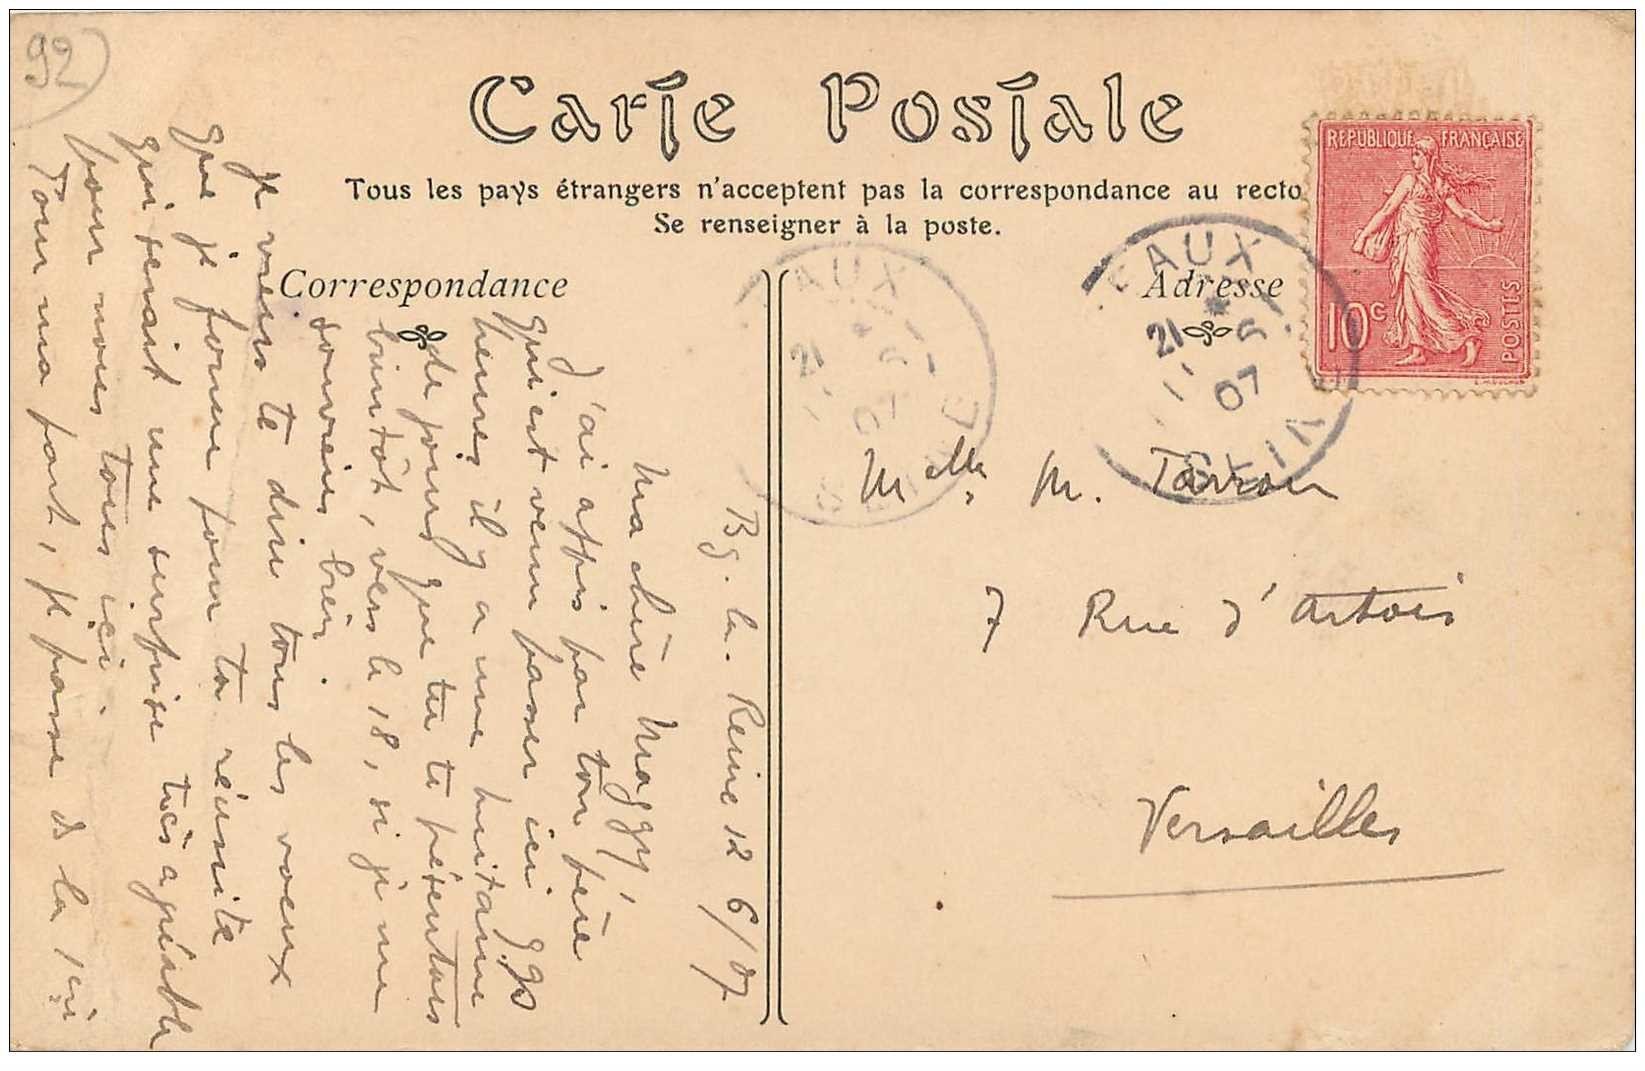 92
Carte Postale
Tous les pays étrangers n'acceptent pas la correspondance au recto
Se renseigner à la poste.
Correspondance
Adresse
REPUBLIQUE FRANÇAISE
10c
POSTES
EAUX
21
6
07
SEINE
EAUX
21
6
07
SEINE
Melle M.
7 Rue d'Artois
Versailles
Bg. la. Reine 12 6/07
Ma chère Maggy
J'ai appris par ton père
qui est venu passer ici qqs
heures il y a une huitaine
de jours que tu te présentais
bientôt, vers le 18, si je me
souviens bien.
Je viens te dire tous les voeux
que je forme pour ta réussite
qui serait une surprise très agréable
pour nous tous ici.
Pour ma part, je passe de la